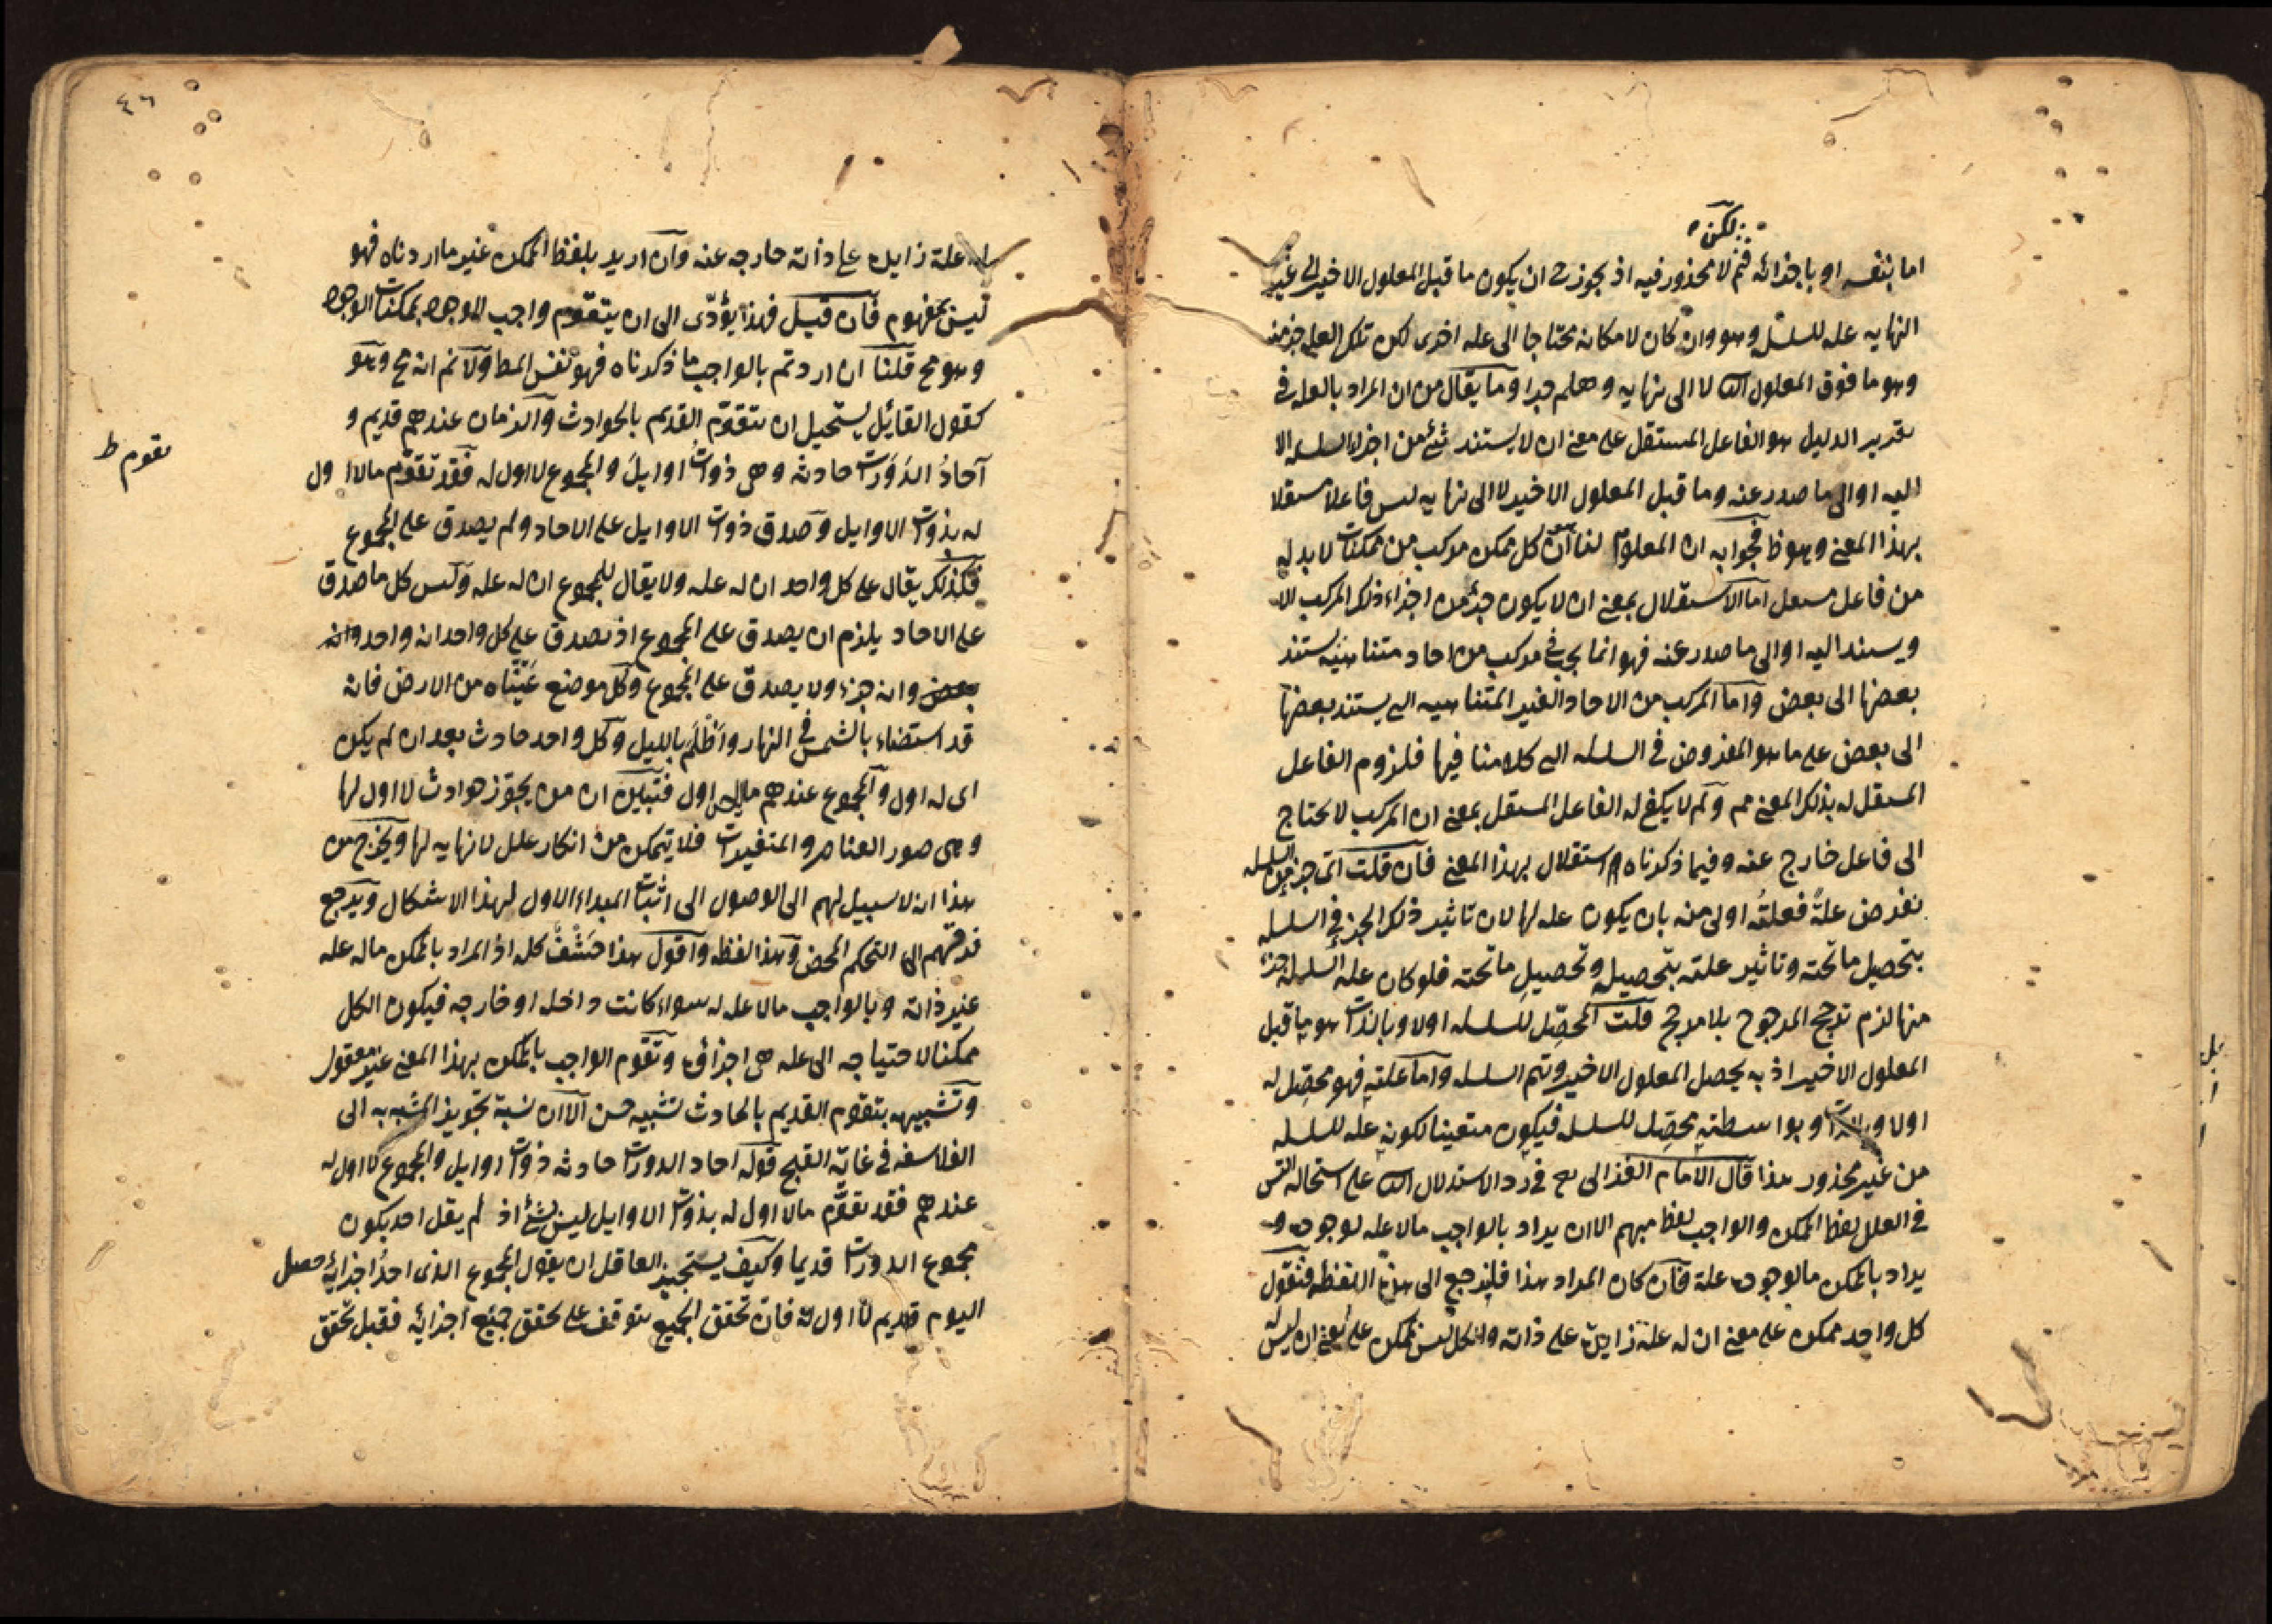 لكن
اما بنفسه او باجزائه فثم لا محذور فيه اذ يجوز ح ان يكون ما قبل المعلول الاخير الى غير
النهايه عله للسلسله وهو وان كان لامكانه محتاجا الى عله اخرى لكن تلك العله جزء منه
وهو ما فوق المعلول الاخير لا الى نهايه وهلم جرا وما يقال من ان المراد بالعله فى
تقرير الدليل هو الفاعل المستقل على معنى ان لا يستند شئ من اجزاء السلسله الا
اليه او الى ما صدر عنه وما قبل المعلول الاخير لا الى نهايه ليس فاعلا مستقلا
بهذا المعنى وهو ظ فجوابه ان المعلوم لنا ان كل ممكن مركب من ممكنات لا بد له
من فاعل مستقل اما الاستقلال بمعنى ان لا يكون جزء من اجزاء ذلك المركب الا
ويستند اليه او الى ما صدر عنه فهو انما يجب فى مركب من احاد متناهيه يستند
بعضها الى بعض واما المركب من الاحاد الغير المتناهيه التى يستند بعضها
الى بعض على ما هو المفروض فى السلسله التى كلامنا فيها فلزوم الفاعل
المستقل له بذلك المعنى مم ولم لا يكفى له الفاعل المستقل بمعنى ان المركب لا يحتاج
الى فاعل خارج عنه وفيما ذكرناه استقلال بهذا المعنى فان قلت اى جزء من السلسله
نفرض علة فعلته اولى منه بان يكون عله لها لان تاثير ذلك الجزء فى السلسله
بتحصيل ما تحته وتاثير علته بتحصيله وتحصيل ما تحته فلو كان علة السلسله جزء
منها لزم ترجح المرجوح بلا مرجح قلت المحصل للسلسله اولا وبالذات هو ما قبل
المعلول الاخير اذ به يحصل المعلول الاخير وتتم السلسله واما علته فهو محصل له
اولا وبالذات وبواسطته محصل للسلسله فيكون متعينا لكونه عله للسلسله
من غير محذور هذا قال الامام الغزالى رح فى رد الاستدلال على استحاله التس
فى العلل لفظ الممكن والواجب لفظ مبهم الا ان يراد بالواجب ما لا عله لوجوده و
يراد بالممكن ما لوجوده علة فان كان المراد هذا فليرجع الى هذه اللفظه فنقول
كل واحد ممكن على معنى ان له علة زايدة على ذاته والكل ليس بممكن على معنى ان ليس له
٤٦
له علة زايده على ذاته خارجه عنه وان اريد بلفظ الممكن غير ما اردناه فهو
ليس بمفهوم فان قيل فهذا يؤدى الى ان يتقوم واجب الوجود بممكنات الوجود
وهو مح قلنا ان اردتم بالواجب ما ذكرناه فهو نفس المط ولا نم انه مح وهو
كقول القائل يستحيل ان يتقوم القديم بالحوادث والزمان عندهم قديم و
آحاد الدورات حادثه وهى ذوات اوايل والمجموع لا اول له فقد تقوم ما لا اول
تقوم ط
له بذوات الاوايل وصدق ذوات الاوايل على الاحاد ولم يصدق على المجموع
فكذلك يقال على كل واحد ان له عله ولا يقال للمجموع ان له عله وليس كل ما صدق
على الاحاد يلزم ان يصدق على المجموع اذ يصدق على كل واحد انه واحد وانه
بعض وانه جزء ولا يصدق على المجموع وكل موضع عيناه من الارض فانه
قد استضاء بالشمس فى النهار واظلم بالليل وكل واحد حادث بعد ان لم يكن
اى له اول والمجموع عندهم ما ليس له اول فتبين ان من يجوز حوادث لا اول لها
وهى صور العناصر والمتغيرات فلا يتمكن من انكار علل لا نهايه لها ويخرج من
هذا انه لا سبيل لهم الى الوصول الى اثبات المبداء الاول لهذا الاشكال ويرجع
فرقهم الى التحكم المحض وهذا لفظه واقول هذا كله اذ المراد بالممكن ما له عله
غير ذاته وبالواجب ما لا عله له سواء كانت داخله او خارجه فيكون الكل
ممكنا لاحتياجه الى عله هى اجزاؤه وتقوم الواجب بالممكن بهذا المعنى غير معقول
وتشبيهه بتقوم القديم بالحادث تشبيه حسن الا ان نسبة تجويز المشبه به الى
الفلاسفه فى غاية القبح قوله احاد الدورات حادثه ذوات اوايل والمجموع لا اول له
عندهم فقد تقوم ما لا اول له بذوات الاوايل ليس بشئ اذ لم يقل احد بكون
مجموع الدورات قديما وكيف يستجيز العاقل ان يقول المجموع الذى احد اجزائه حصل
اليوم قديم لا اول له فان تحقق الجميع يتوقف على تحقق جميع اجزائه فقبل تحقق